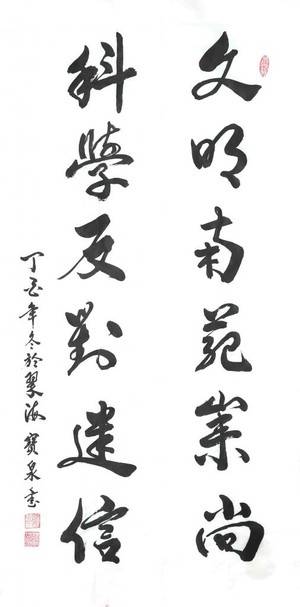 文明南苑崇尚
科學反對迷信
丁酉年冬於翠海寶泉書